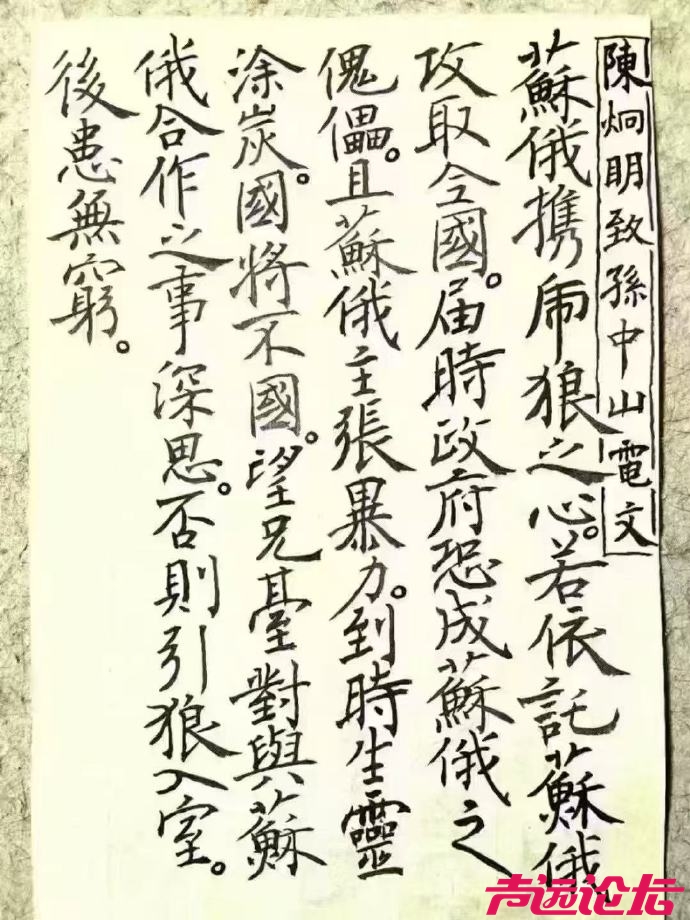 陳炯明致孫中山電文
蘇俄携虎狼之心。若依託蘇俄
攻取全國。届時政府恐成蘇俄之
傀儡。且蘇俄主張暴力。到時生靈
涂炭。國將不國。望兄臺對與蘇
俄合作之事深思。否則引狼入室。
後患無窮。
声远论坛